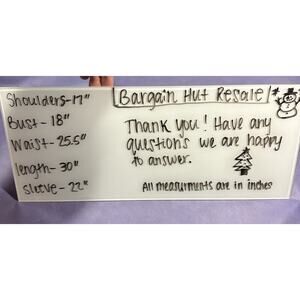 Shoulders-17"
Bust-18"
Waist-25.5"
length-30"
Sleeve-22"
Bargain Hut Resale!
Thank you! Have any
questions we are happy
to answer.
All measurments are in inches